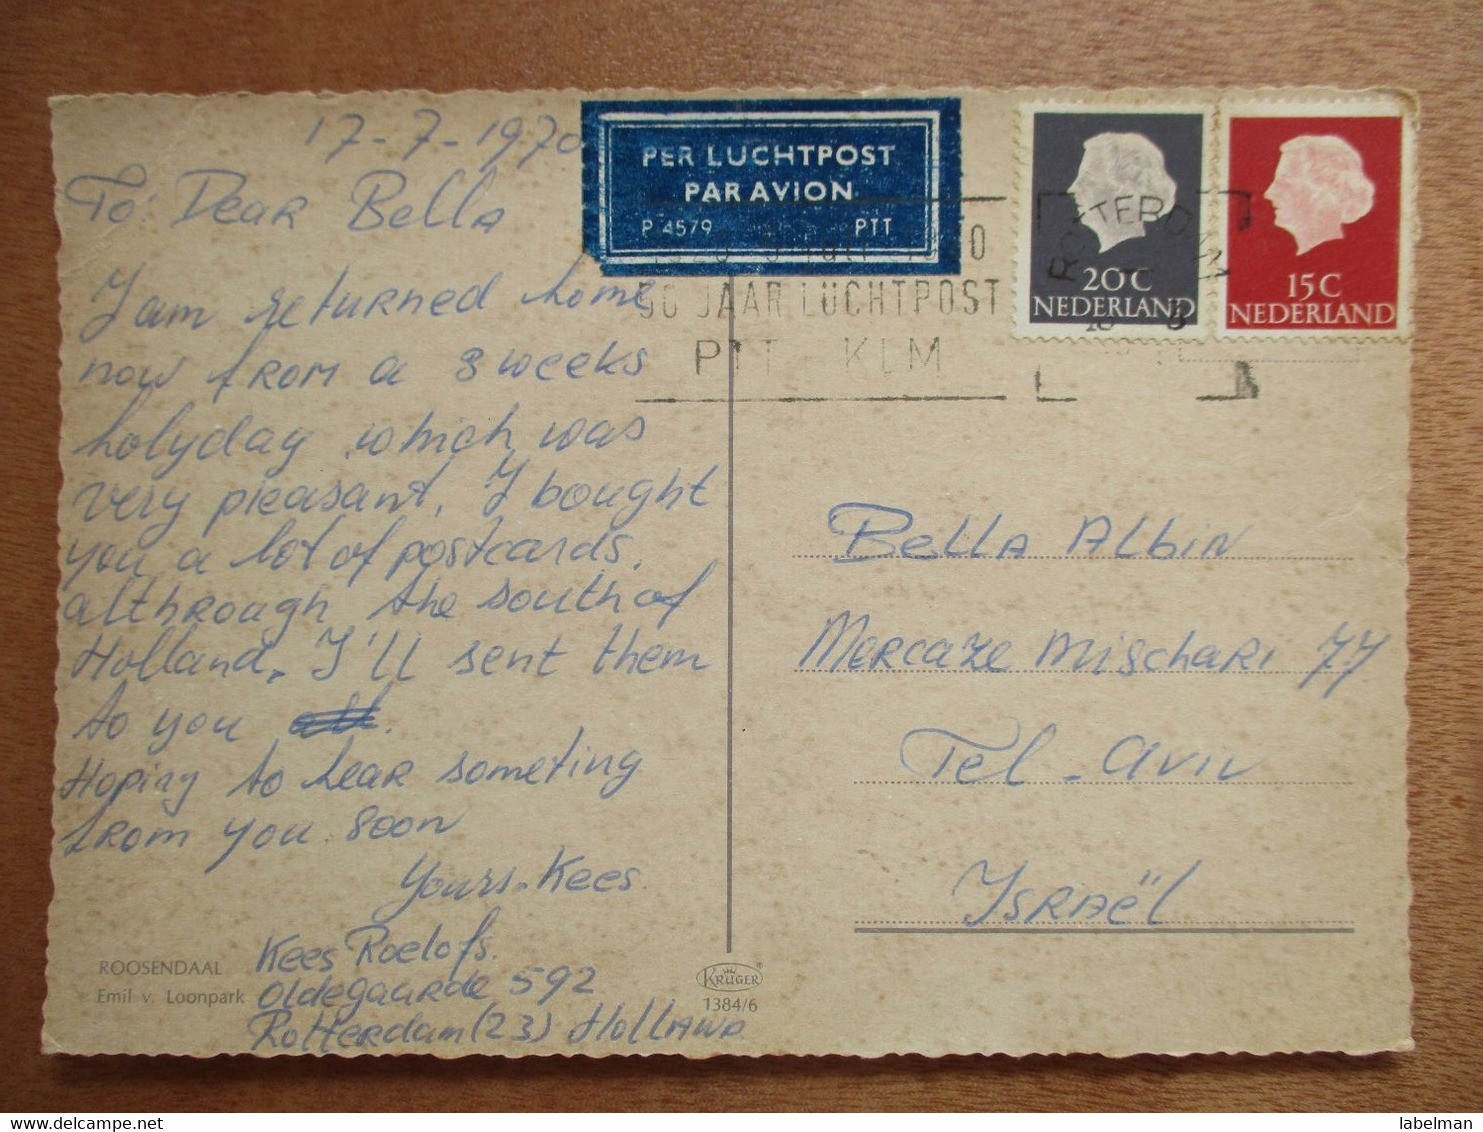 17-7-1970
To: Dear Bella
I am returned home
now from a 3 weeks
holyday, which was
very pleasant. I bought
you a lot of postcards.
althrough the south of
Holland. I'll sent them
to you
Hoping to hear someting
from you soon
Yours. Kees.
Kees Roelofs.
Oldegaarde 592
Rotterdam (23) Holland
ROOSENDAAL
Emil v. Loonpark
KRÜGER
1384/6
PER LUCHTPOST
PAR AVION
P 4579 PTT
50 JAAR LUCHTPOST
PTT KLM
ROTTERDAM
20 C
NEDERLAND
15 C
NEDERLAND
Bella Albin
Mercaze Mischari 77
Tel-Aviv
Israël
labelman
www.delcampe.net